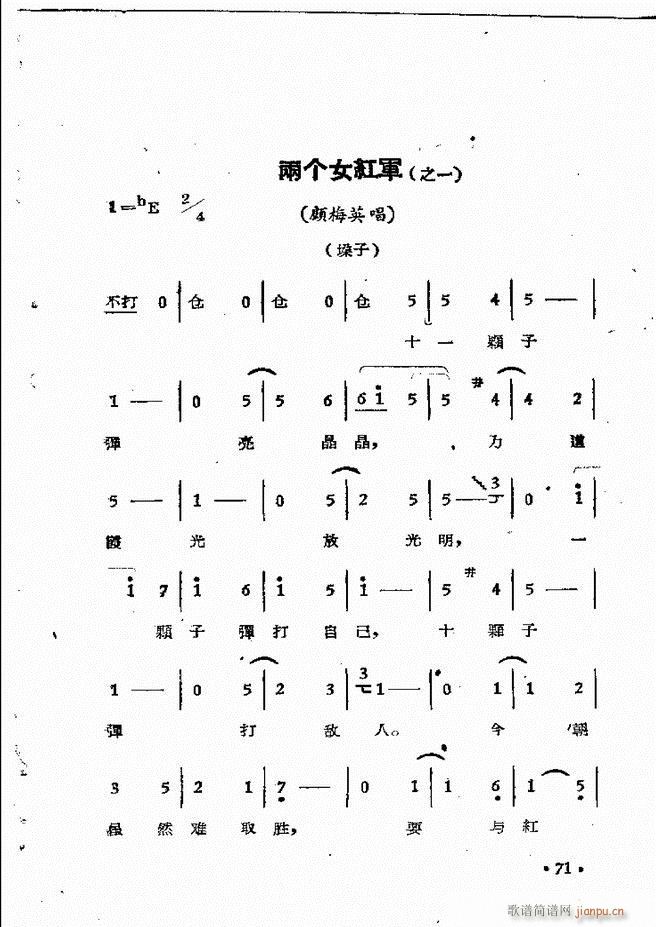 兩个女紅軍(之一)
1=ᵇE 2/4
(顧梅英唱)
(垛子)
不打 0 | 仓 0 | 仓 0 | 仓 5 | 5 4 | 5 — |
十一 顆子
1 — | 0 5 | 5 6 | 6 1 5 | 5 #4 | 4 2
彈 亮 晶晶, 力 道
5 — | 1 — | 0 5 | 2 5 | 5 — 3 | 0 1
霞 光 放 光明, 一
1 7 | 1 6 | 1 5 | 1 — | 5 #4 | 5 — |
顆子彈打自己, 十 顆子
1 — | 0 5 | 2 3 | 3 1 — | 0 1 | 1 2
彈 打 敌人。 今 朝
3 5 | 2 1 | 7 — | 0 1 | 1 6 | 1 5 |
虽然难取胜, 要 与紅
·71·
歌谱简谱网 jianpu.cn